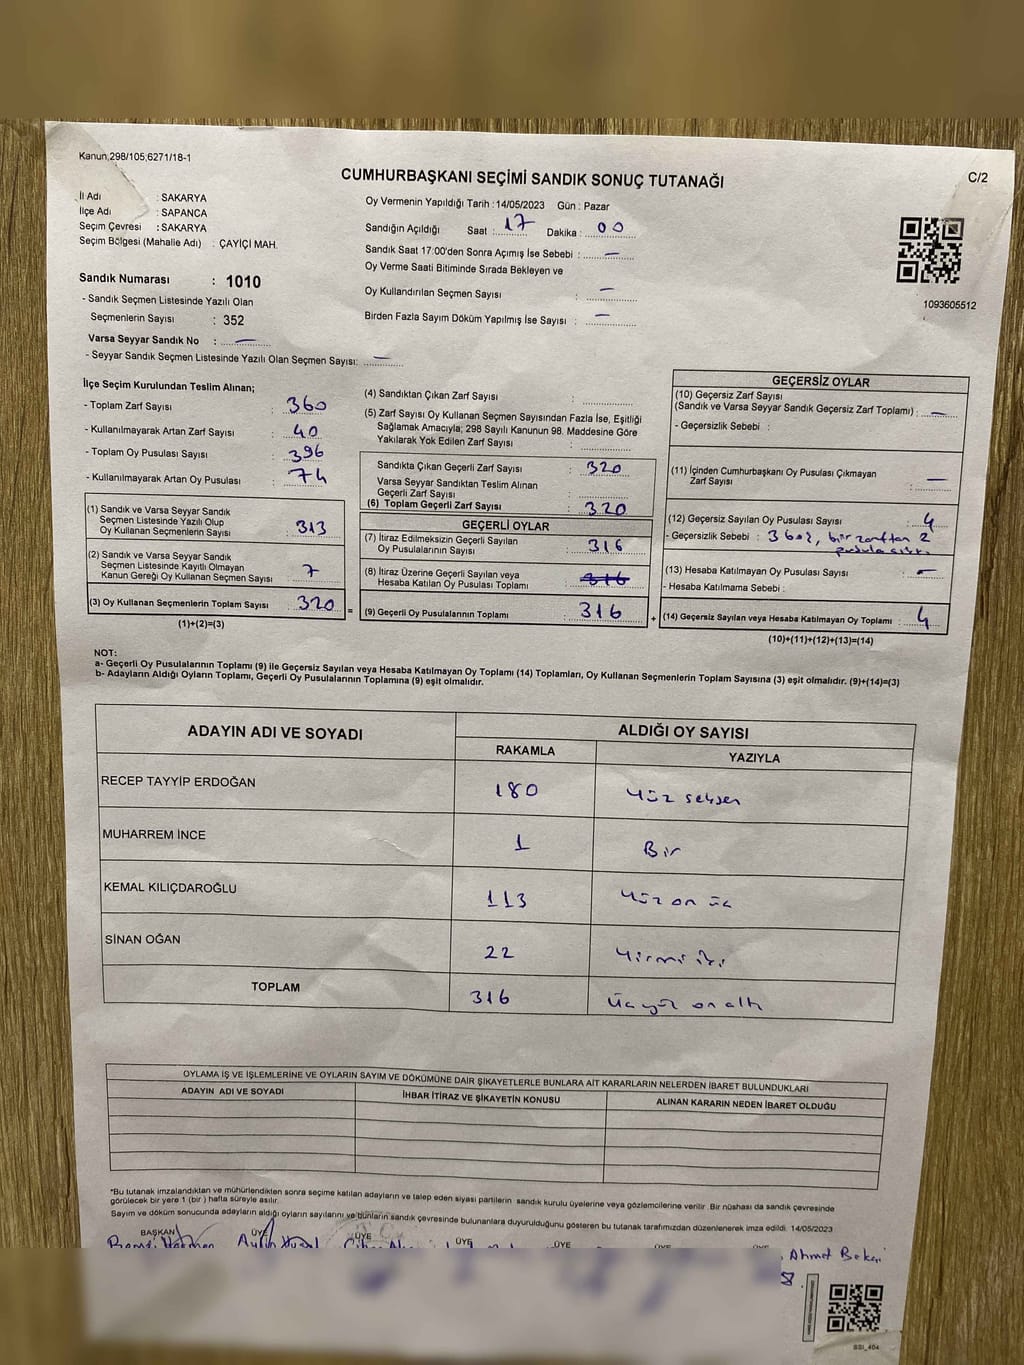 Kanun,298/105,6271/18-1
CUMHURBAŞKANI SEÇİMİ SANDIK SONUÇ TUTANAĞI
C/2
İl Adı : SAKARYA
İlçe Adı : SAPANCA
Seçim Çevresi : SAKARYA
Seçim Bölgesi (Mahalle Adı) : ÇAYİÇİ MAH.
Sandık Numarası : 1010
- Sandık Seçmen Listesinde Yazılı Olan
Seçmenlerin Sayısı : 352
Varsa Seyyar Sandık No : —
- Seyyar Sandık Seçmen Listesinde Yazılı Olan Seçmen Sayısı: —
Oy Vermenin Yapıldığı Tarih : 14/05/2023 Gün : Pazar
Sandığın Açıldığı Saat : 17 Dakika : 00
Sandık Saat 17:00'den Sonra Açımış İse Sebebi : —
Oy Verme Saati Bitiminde Sırada Bekleyen ve
Oy Kullandırılan Seçmen Sayısı : —
Birden Fazla Sayım Döküm Yapılmış İse Sayısı : —
1093605512
İlçe Seçim Kurulundan Teslim Alınan;
- Toplam Zarf Sayısı : 360
- Kullanılmayarak Artan Zarf Sayısı : 40
- Toplam Oy Pusulası Sayısı : 396
- Kullanılmayarak Artan Oy Pusulası : 74
(1) Sandık ve Varsa Seyyar Sandık
Seçmen Listesinde Yazılı Olup
Oy Kullanan Seçmenlerin Sayısı : 313
(2) Sandık ve Varsa Seyyar Sandık
Seçmen Listesinde Kayıtlı Olmayan
Kanun Gereği Oy Kullanan Seçmen Sayısı : 7
(3) Oy Kullanan Seçmenlerin Toplam Sayısı : 320 =
(1)+(2)=(3)
(4) Sandıktan Çıkan Zarf Sayısı :
(5) Zarf Sayısı Oy Kullanan Seçmen Sayısından Fazla İse, Eşitliği
Sağlamak Amacıyla; 298 Sayılı Kanunun 98. Maddesine Göre
Yakılarak Yok Edilen Zarf Sayısı :
Sandıkta Çıkan Geçerli Zarf Sayısı : 320
Varsa Seyyar Sandıktan Teslim Alınan
Geçerli Zarf Sayısı :
(6) Toplam Geçerli Zarf Sayısı : 320
GEÇERLİ OYLAR
(7) İtiraz Edilmeksizin Geçerli Sayılan
Oy Pusulalarının Sayısı : 316
(8) İtiraz Üzerine Geçerli Sayılan veya
Hesaba Katılan Oy Pusulası Toplamı : 316
(9) Geçerli Oy Pusulalarının Toplamı : 316 +
GEÇERSİZ OYLAR
(10) Geçersiz Zarf Sayısı
(Sandık ve Varsa Seyyar Sandık Geçersiz Zarf Toplamı) : —
- Geçersizlik Sebebi :
(11) İçinden Cumhurbaşkanı Oy Pusulası Çıkmayan
Zarf Sayısı : —
(12) Geçersiz Sayılan Oy Pusulası Sayısı : 4
- Geçersizlik Sebebi : 3 boş, bir zarftan 2
pusula çıktı.
(13) Hesaba Katılmayan Oy Pusulası Sayısı : —
- Hesaba Katılmama Sebebi :
(14) Geçersiz Sayılan veya Hesaba Katılmayan Oy Toplamı : 4
(10)+(11)+(12)+(13)=(14)
NOT:
a- Geçerli Oy Pusulalarının Toplamı (9) ile Geçersiz Sayılan veya Hesaba Katılmayan Oy Toplamı (14) Toplamları, Oy Kullanan Seçmenlerin Toplam Sayısına (3) eşit olmalıdır. (9)+(14)=(3)
b- Adayların Aldığı Oyların Toplamı, Geçerli Oy Pusulalarının Toplamına (9) eşit olmalıdır.
ADAYIN ADI VE SOYADI
ALDIĞI OY SAYISI
RAKAMLA YAZIYLA
RECEP TAYYİP ERDOĞAN 180 Yüz seksen
MUHARREM İNCE 1 Bir
KEMAL KILIÇDAROĞLU 113 Yüz on üç
SİNAN OĞAN 22 Yirmi iki
TOPLAM 316 Üçyüz on altı
OYLAMA İŞ VE İŞLEMLERİNE VE OYLARIN SAYIM VE DÖKÜMÜNE DAİR ŞİKAYETLERLE BUNLARA AİT KARARLARIN NELERDEN İBARET BULUNDUKLARI
ADAYIN ADI VE SOYADI İHBAR İTİRAZ VE ŞİKAYETİN KONUSU ALINAN KARARIN NEDEN İBARET OLDUĞU
*Bu tutanak imzalandıktan ve mühürlendikten sonra seçime katılan adayların ve talep eden siyasi partilerin sandık kurulu üyelerine veya gözlemcilerine verilir. Bir nüshası da sandık çevresinde
görülecek bir yere 1 (bir) hafta süreyle asılır.
Sayım ve döküm sonucunda adayların aldığı oyların sayılarını ve bunların sandık çevresinde bulunanlara duyurulduğunu gösteren bu tutanak tarafımızdan düzenlenerek imza edildi. 14/05/2023
BAŞKAN ÜYE ÜYE ÜYE ÜYE ÜYE ÜYE
Ahmet
SSI_404